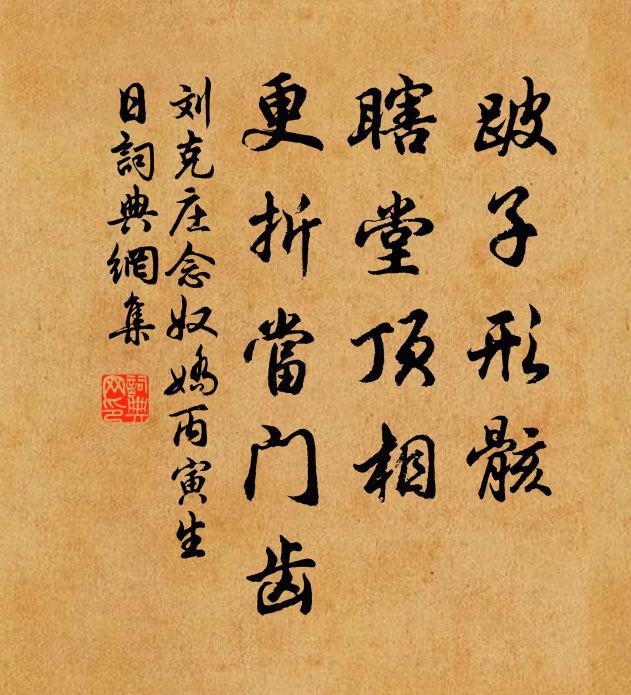 跛子形骸
瞎堂顶相
更折當门齿
刘克庄念奴嬌丙寅生
日詞典網集
詞典
网印